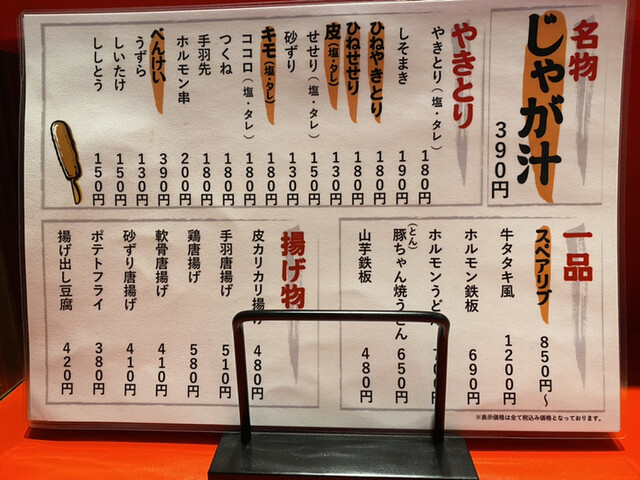 名物
じゃが汁
390円
やきとり
やきとり(塩・タレ) 180円
しそまき 190円
ひねやきとり 180円
ひねせせり 180円
皮(塩・タレ) 130円
せせり(塩・タレ) 150円
砂ずり 130円
キモ(塩・タレ) 180円
ココロ(塩・タレ) 180円
つくね 180円
手羽先 180円
ホルモン串 200円
べんけい 390円
うずら 130円
しいたけ 150円
ししとう 150円
一品
スペアリブ 850円～
牛タタキ風 1200円
ホルモン鉄板 690円
ホルモンうど
豚ちゃん焼うどん(とん) 650円
山芋鉄板 480円
※表示価格は全て税込み価格となっております。
揚げ物
皮カリカリ揚げ 480円
手羽唐揚げ 510円
鶏唐揚げ 580円
軟骨唐揚げ 410円
砂ずり唐揚げ 410円
ポテトフライ 380円
揚げ出し豆腐 420円